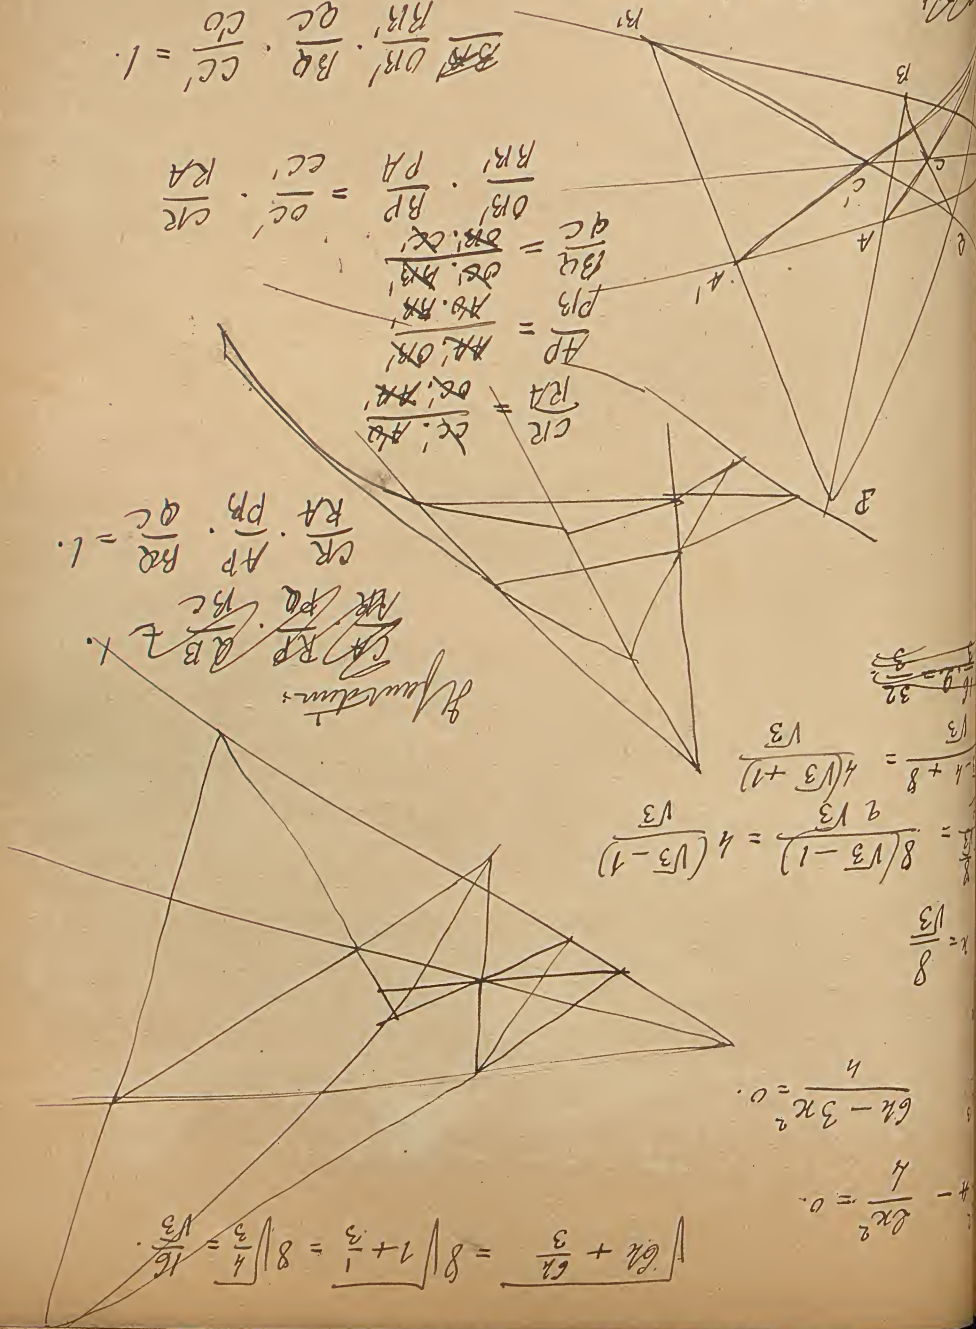 √(64 + 64/3) = 8√(1 + 1/3) = 8√(4/3) = 16/√3.
2x²/4 = 0.
(64 − 3x²)/4 = 0.
x = 8/√3
= 8(√3 − 1)/(2√3) = 4(√3 − 1)/√3
+ 8 = 4(√3 + 1)/√3
= 32/3
CA/AR · RP/PQ · QB/BC = 1.
CR/RA · AP/PB · BQ/QC = 1.
P
CR/RA = CC'.AO/OC'.AA'
AP/PB = AA'.OB'/AO.BB'
BQ/QC = OC'.BB'/OB'.CC'
A'
A
Q
OB'/BB' · BP/PA = OC'/CC' · CR/RA
C'
C
B
OB'/BB' · BQ/QC · CC'/C'O = 1.
B'